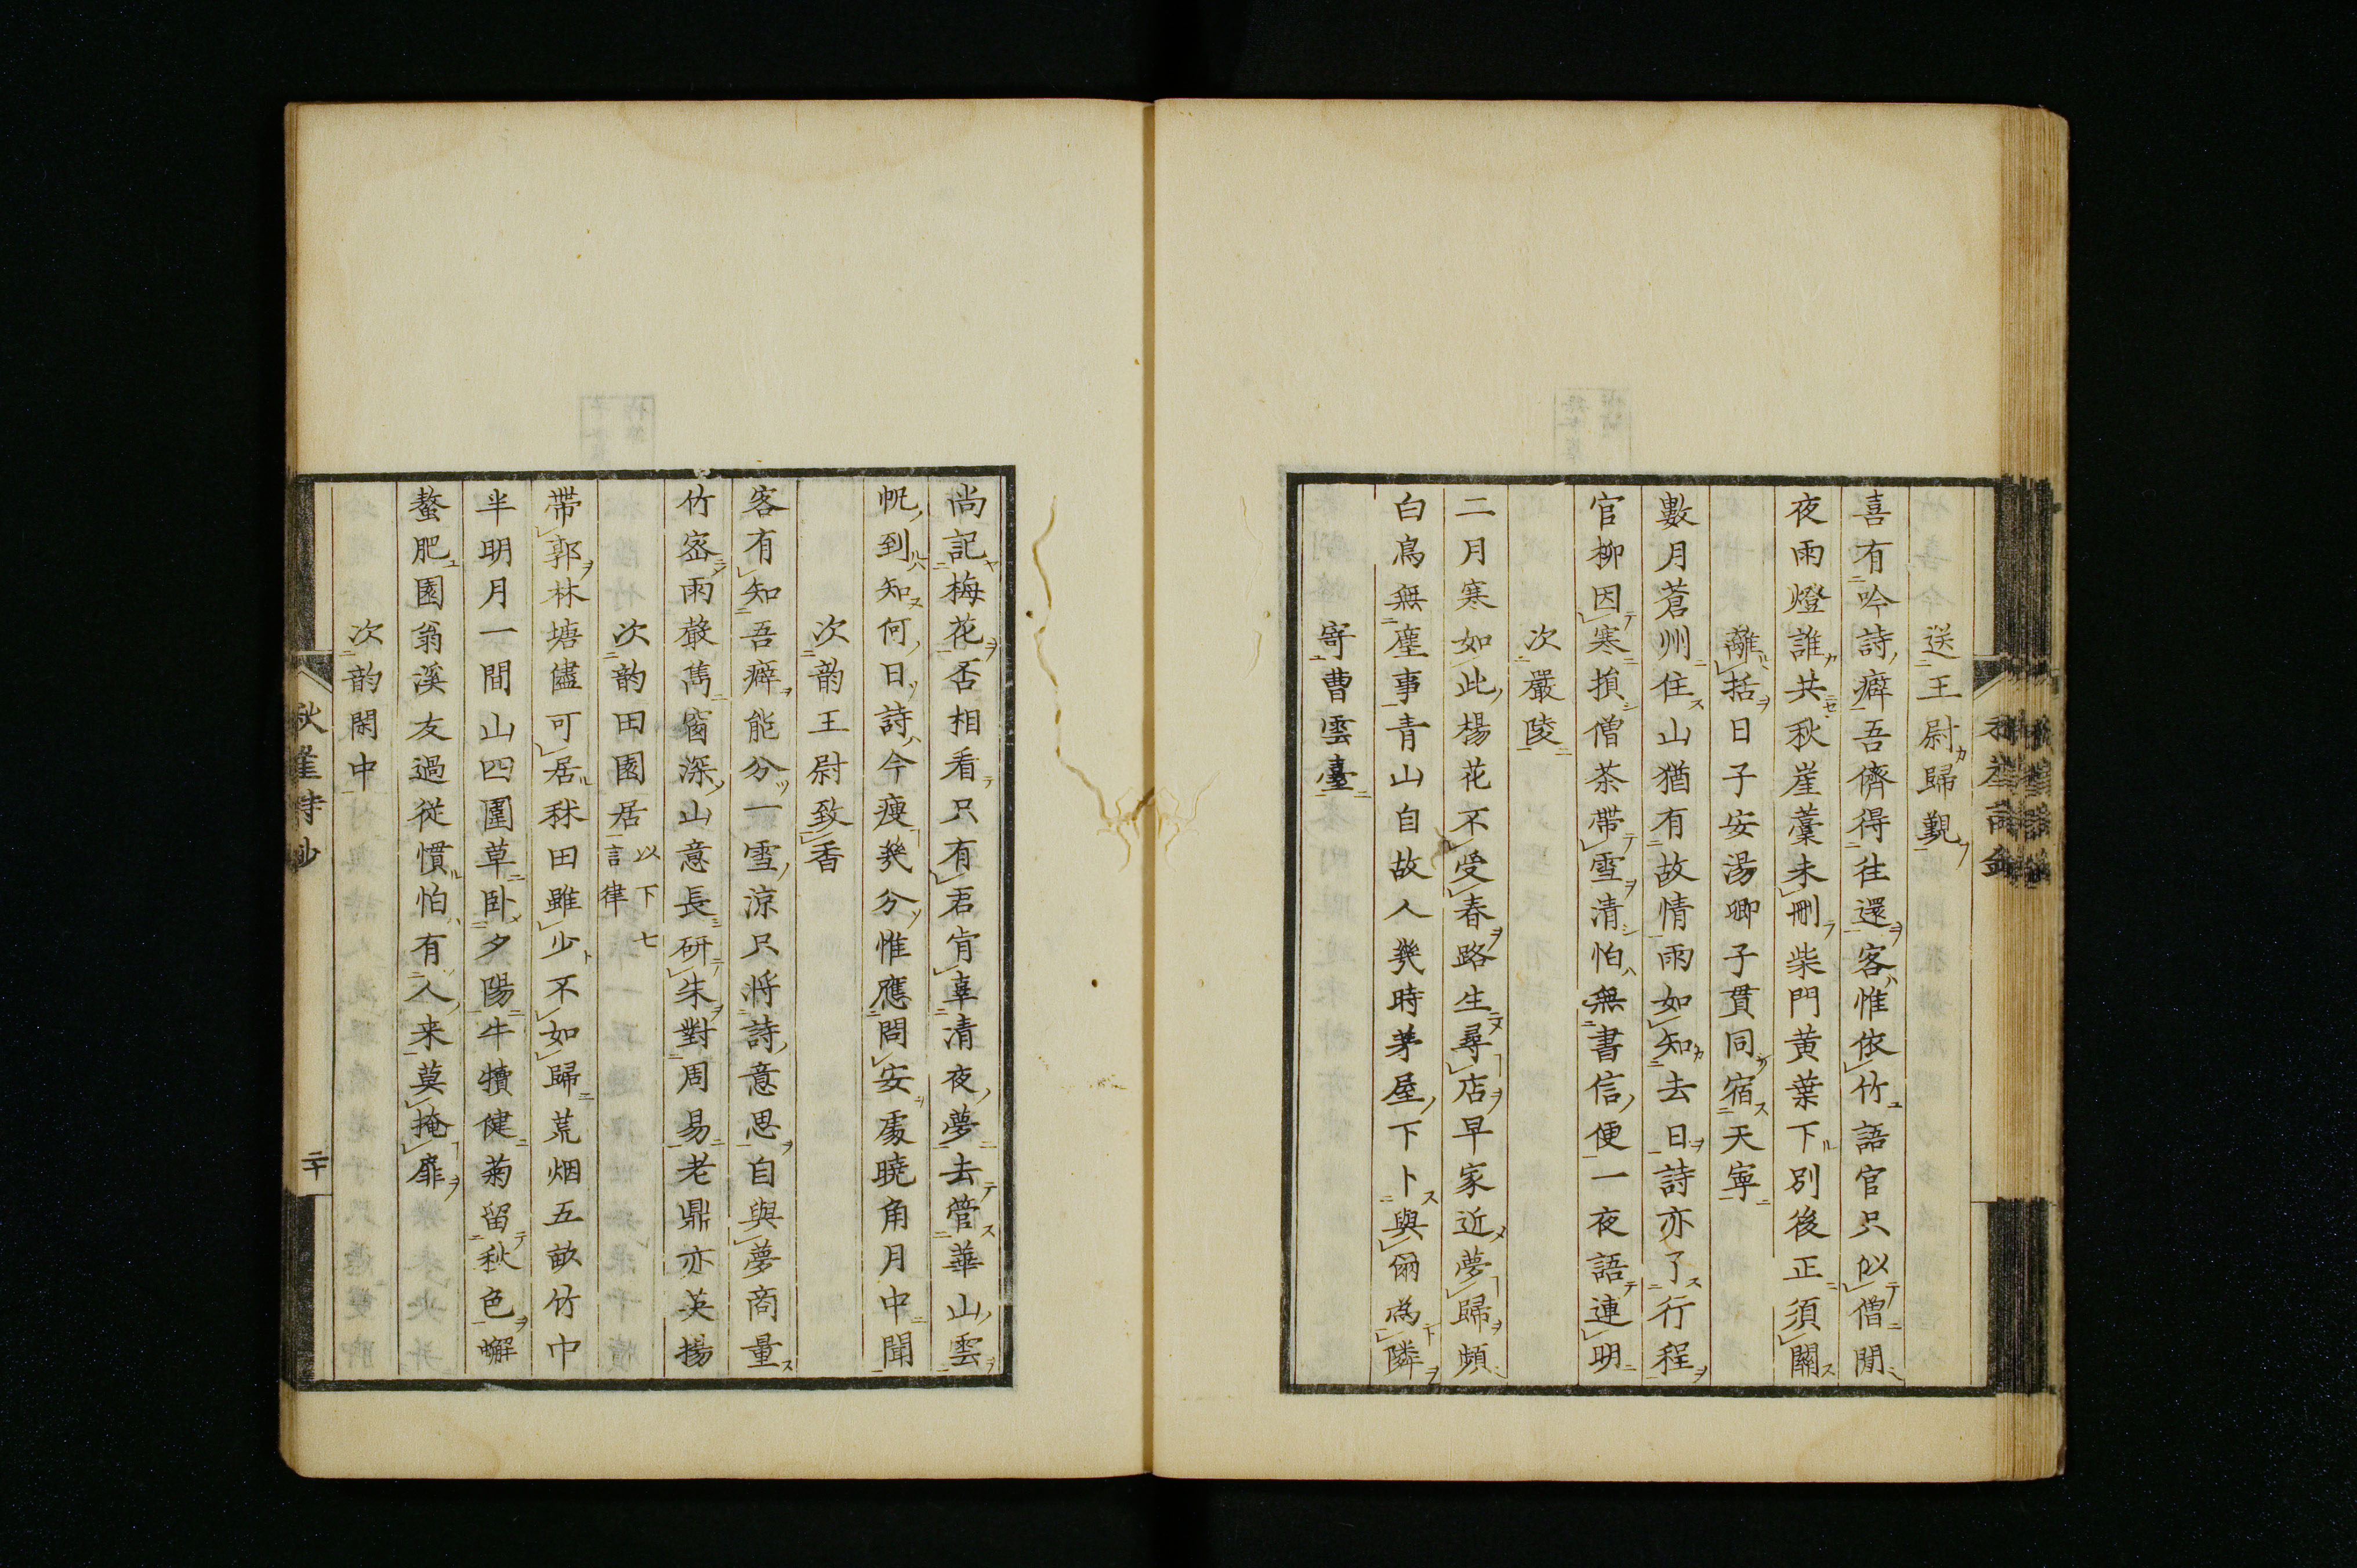 送王尉歸覲
喜有吟詩癖吾儕得往還客惟依竹語官只似僧閒
夜雨燈誰共秋崖藁未刪柴門黄葉下別後正須關
離括日子安湯卿子貫同宿天寧
數月蒼州住山猶有故情雨如知去日詩亦了行程
官柳因寒損僧茶帶雪清怕無書信便一夜語連明
次嚴陵
二月寒如此楊花不受春路生尋店早家近夢歸頻
白鳥無塵事青山自故人幾時茅屋下卜與爾為隣
寄曹雲臺
尚記梅花否相看只有君肯辜清夜夢去管華山雲
帆到知何日詩今瘦幾分惟應問安處曉角月中聞
次韵王尉致香
客有知吾癖能分一雪涼只将詩意思自與夢商量
竹密雨聲雋窗深山意長研朱對周易老鼎亦英揚
次韵田園居以下七言律
帶郭林塘儘可居秫田雖少不如歸荒烟五畝竹中
半明月一間山四圍草卧夕陽牛犢健菊留秋色蠏
螯肥園翁溪友過從慣怕有人来莫掩扉
次韵閑中
秋崖詩鈔
二十